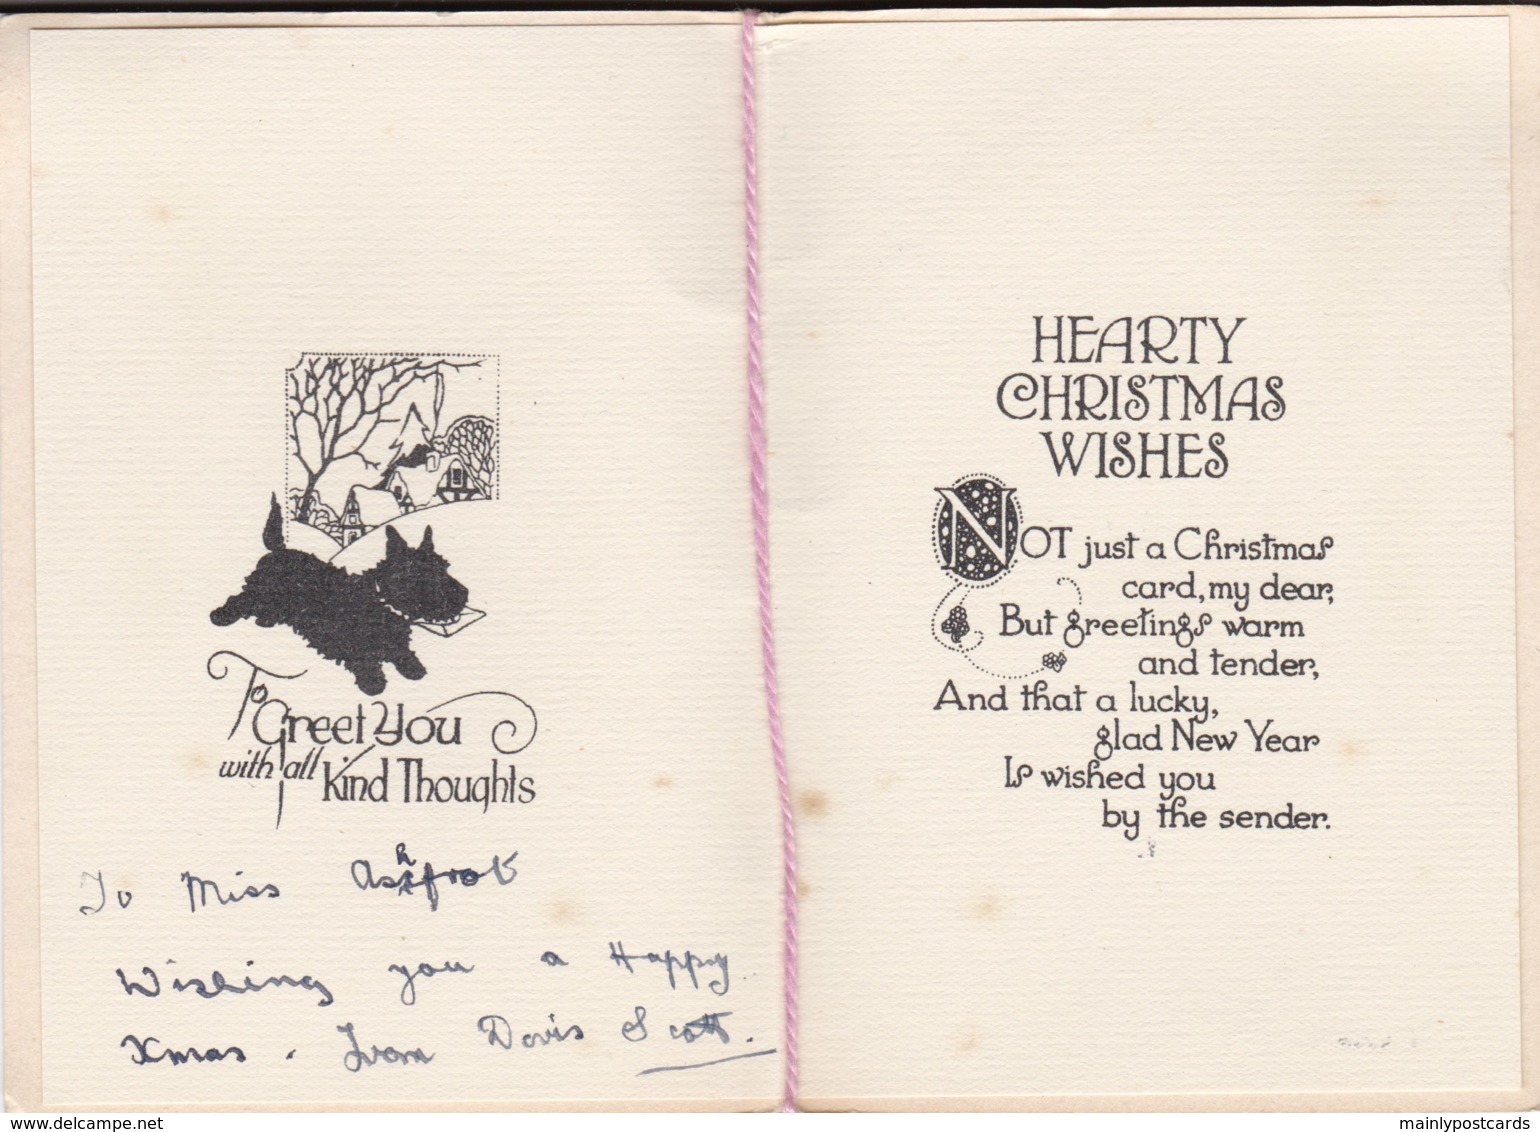 To
Greet You
with all
Kind Thoughts
To Miss
Wishing you a Happy
Xmas. From Doris Scott.
HEARTY
CHRISTMAS
WISHES
NOT just a Christmas
card, my dear,
But greetings warm
and tender,
And that a lucky,
glad New Year
Is wished you
by the sender.
www.delcampe.net
mainlypostcards